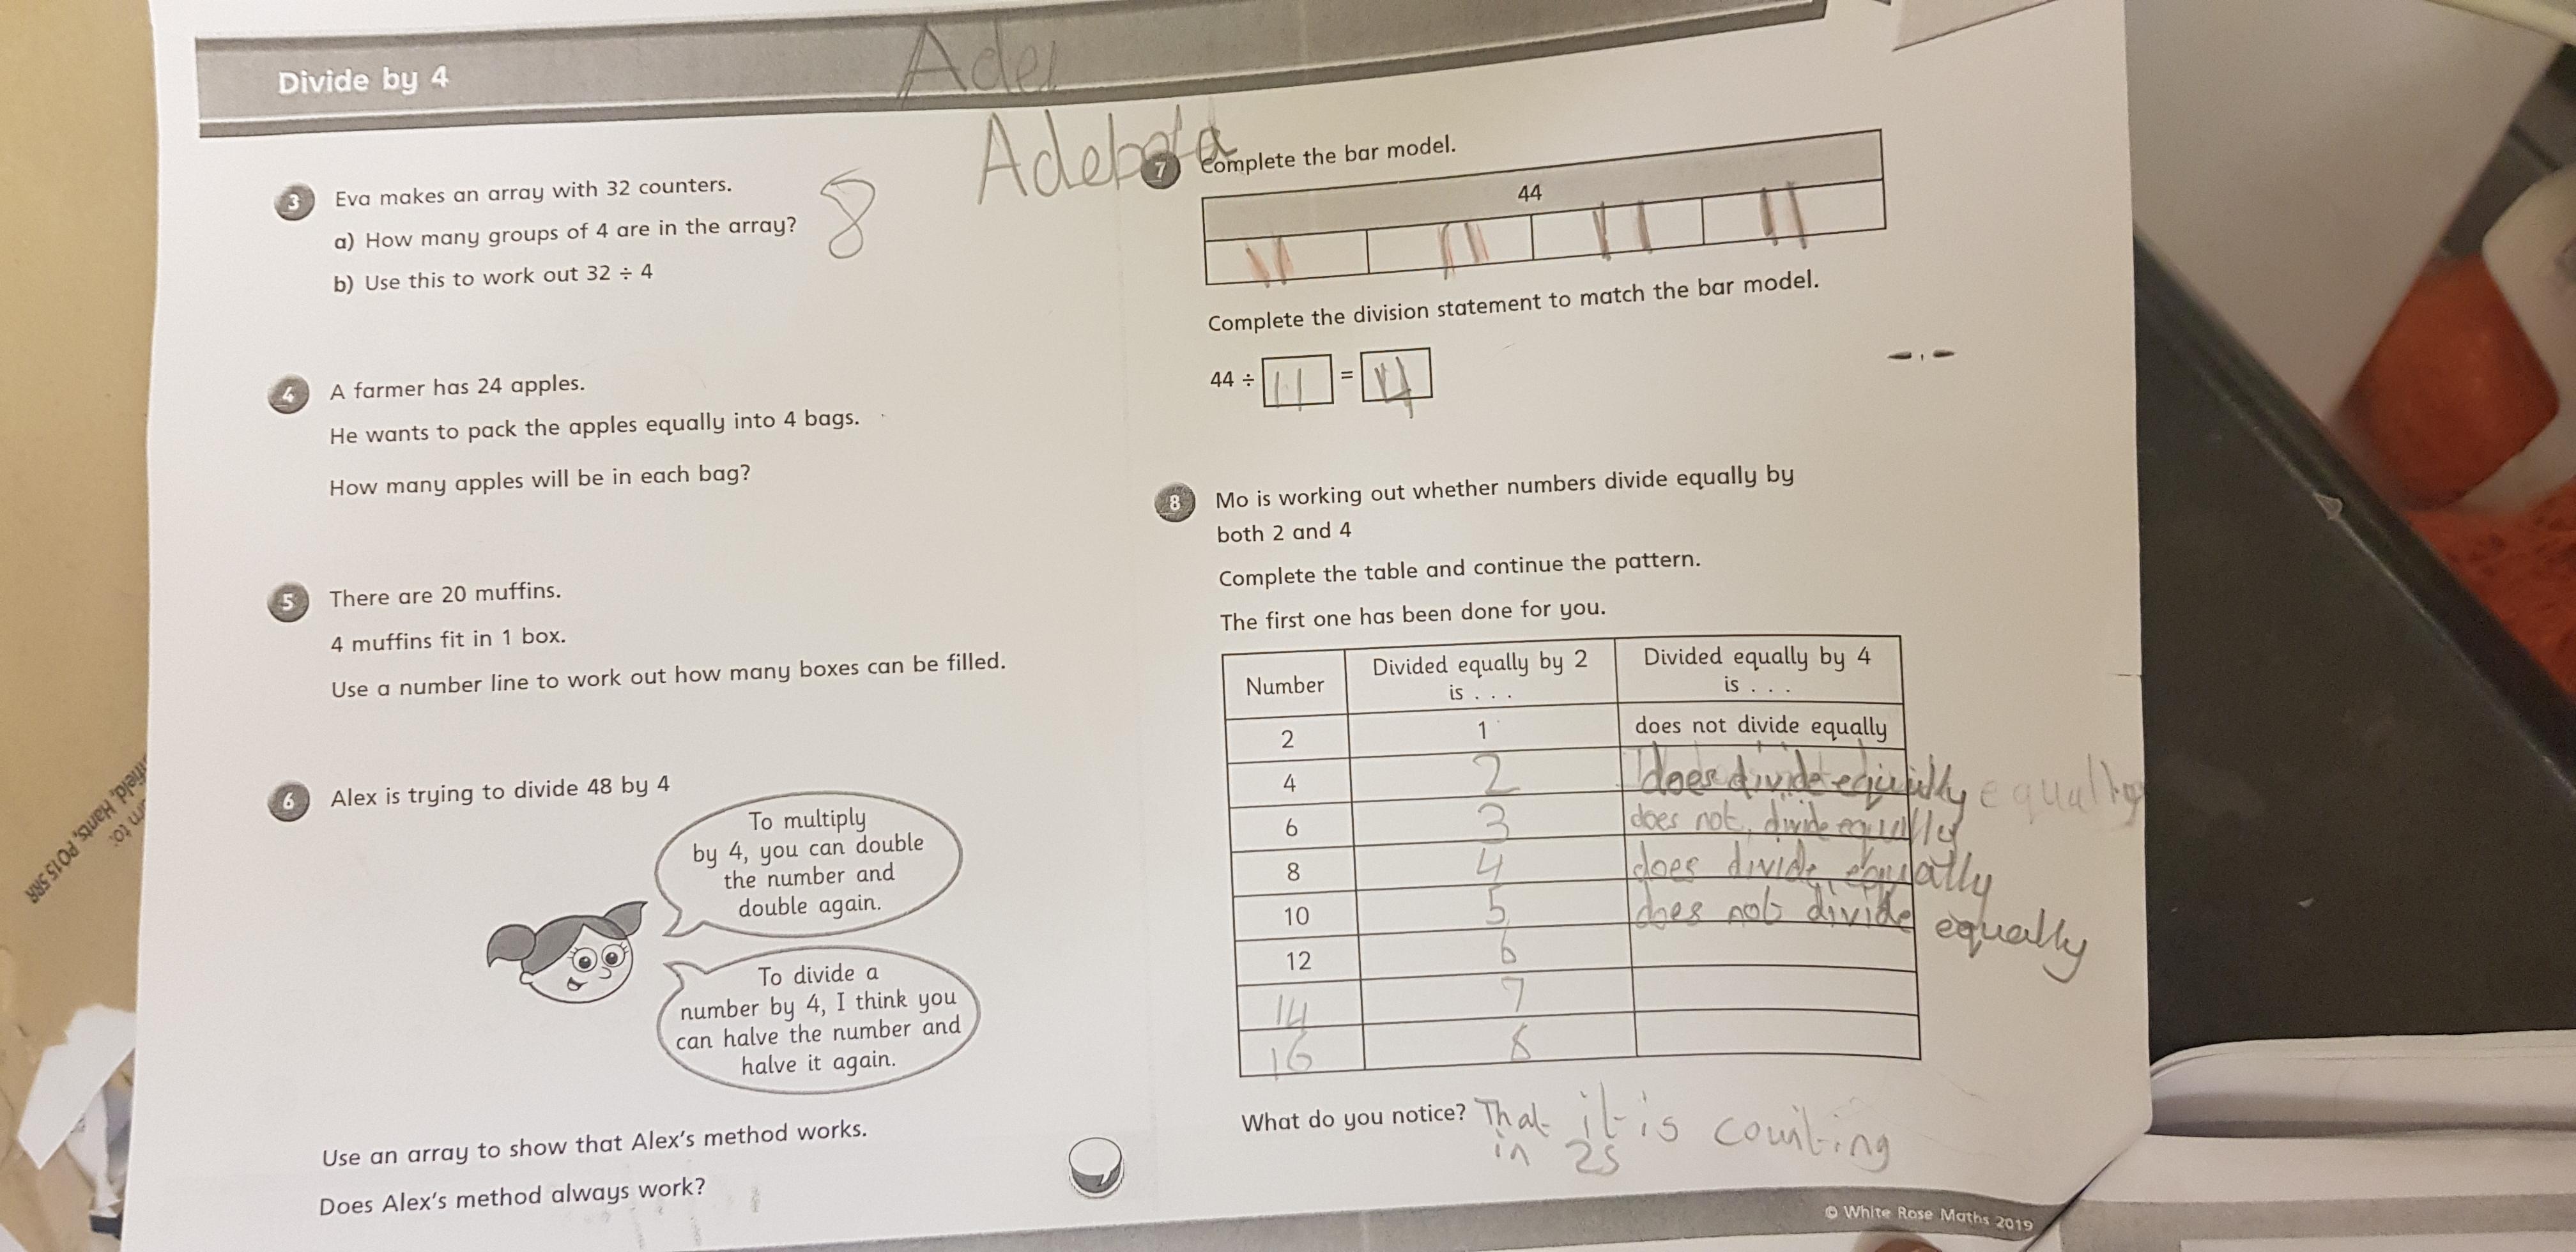 Divide by 4
Ade
Adebola
3 Eva makes an array with 32 counters.
a) How many groups of 4 are in the array? 8
b) Use this to work out 32 ÷ 4
4 A farmer has 24 apples.
He wants to pack the apples equally into 4 bags.
How many apples will be in each bag?
5 There are 20 muffins.
4 muffins fit in 1 box.
Use a number line to work out how many boxes can be filled.
6 Alex is trying to divide 48 by 4
To multiply
by 4, you can double
the number and
double again.
To divide a
number by 4, I think you
can halve the number and
halve it again.
Use an array to show that Alex's method works.
Does Alex's method always work?
7 Complete the bar model.
44
11 11 11 11
Complete the division statement to match the bar model.
44 ÷ 11 = 4
8 Mo is working out whether numbers divide equally by
both 2 and 4
Complete the table and continue the pattern.
The first one has been done for you.
Number Divided equally by 2 is . . . Divided equally by 4 is . . .
2 1 does not divide equally
4 2 does divide equally equally
6 3 does not divide equally
8 4 does divide equally
10 5 does not divide equally
12 6
14 7
16 8
What do you notice? That it is counting
in 2s
© White Rose Maths 2019
PO15 5RR